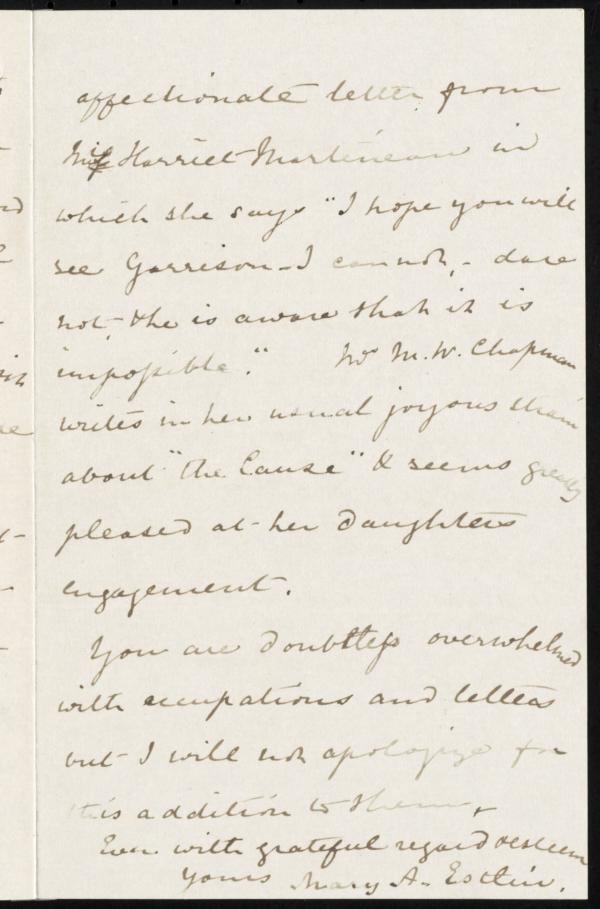 affectionate letter from
Miss Harriet Martineau in
which she says "I hope you will
see Garrison - I cannot, - dare
not, & he is aware that it is
impossible." Mrs M. W. Chapman
writes in her usual joyous strain
about "the Cause" & seems greatly
pleased at her daughters
engagement.
You are doubtless overwhelmed
with occupations and letters
but I will not apologize for
this addition to them,
Ever with grateful regard & esteem
Yours Mary A. Estlin.